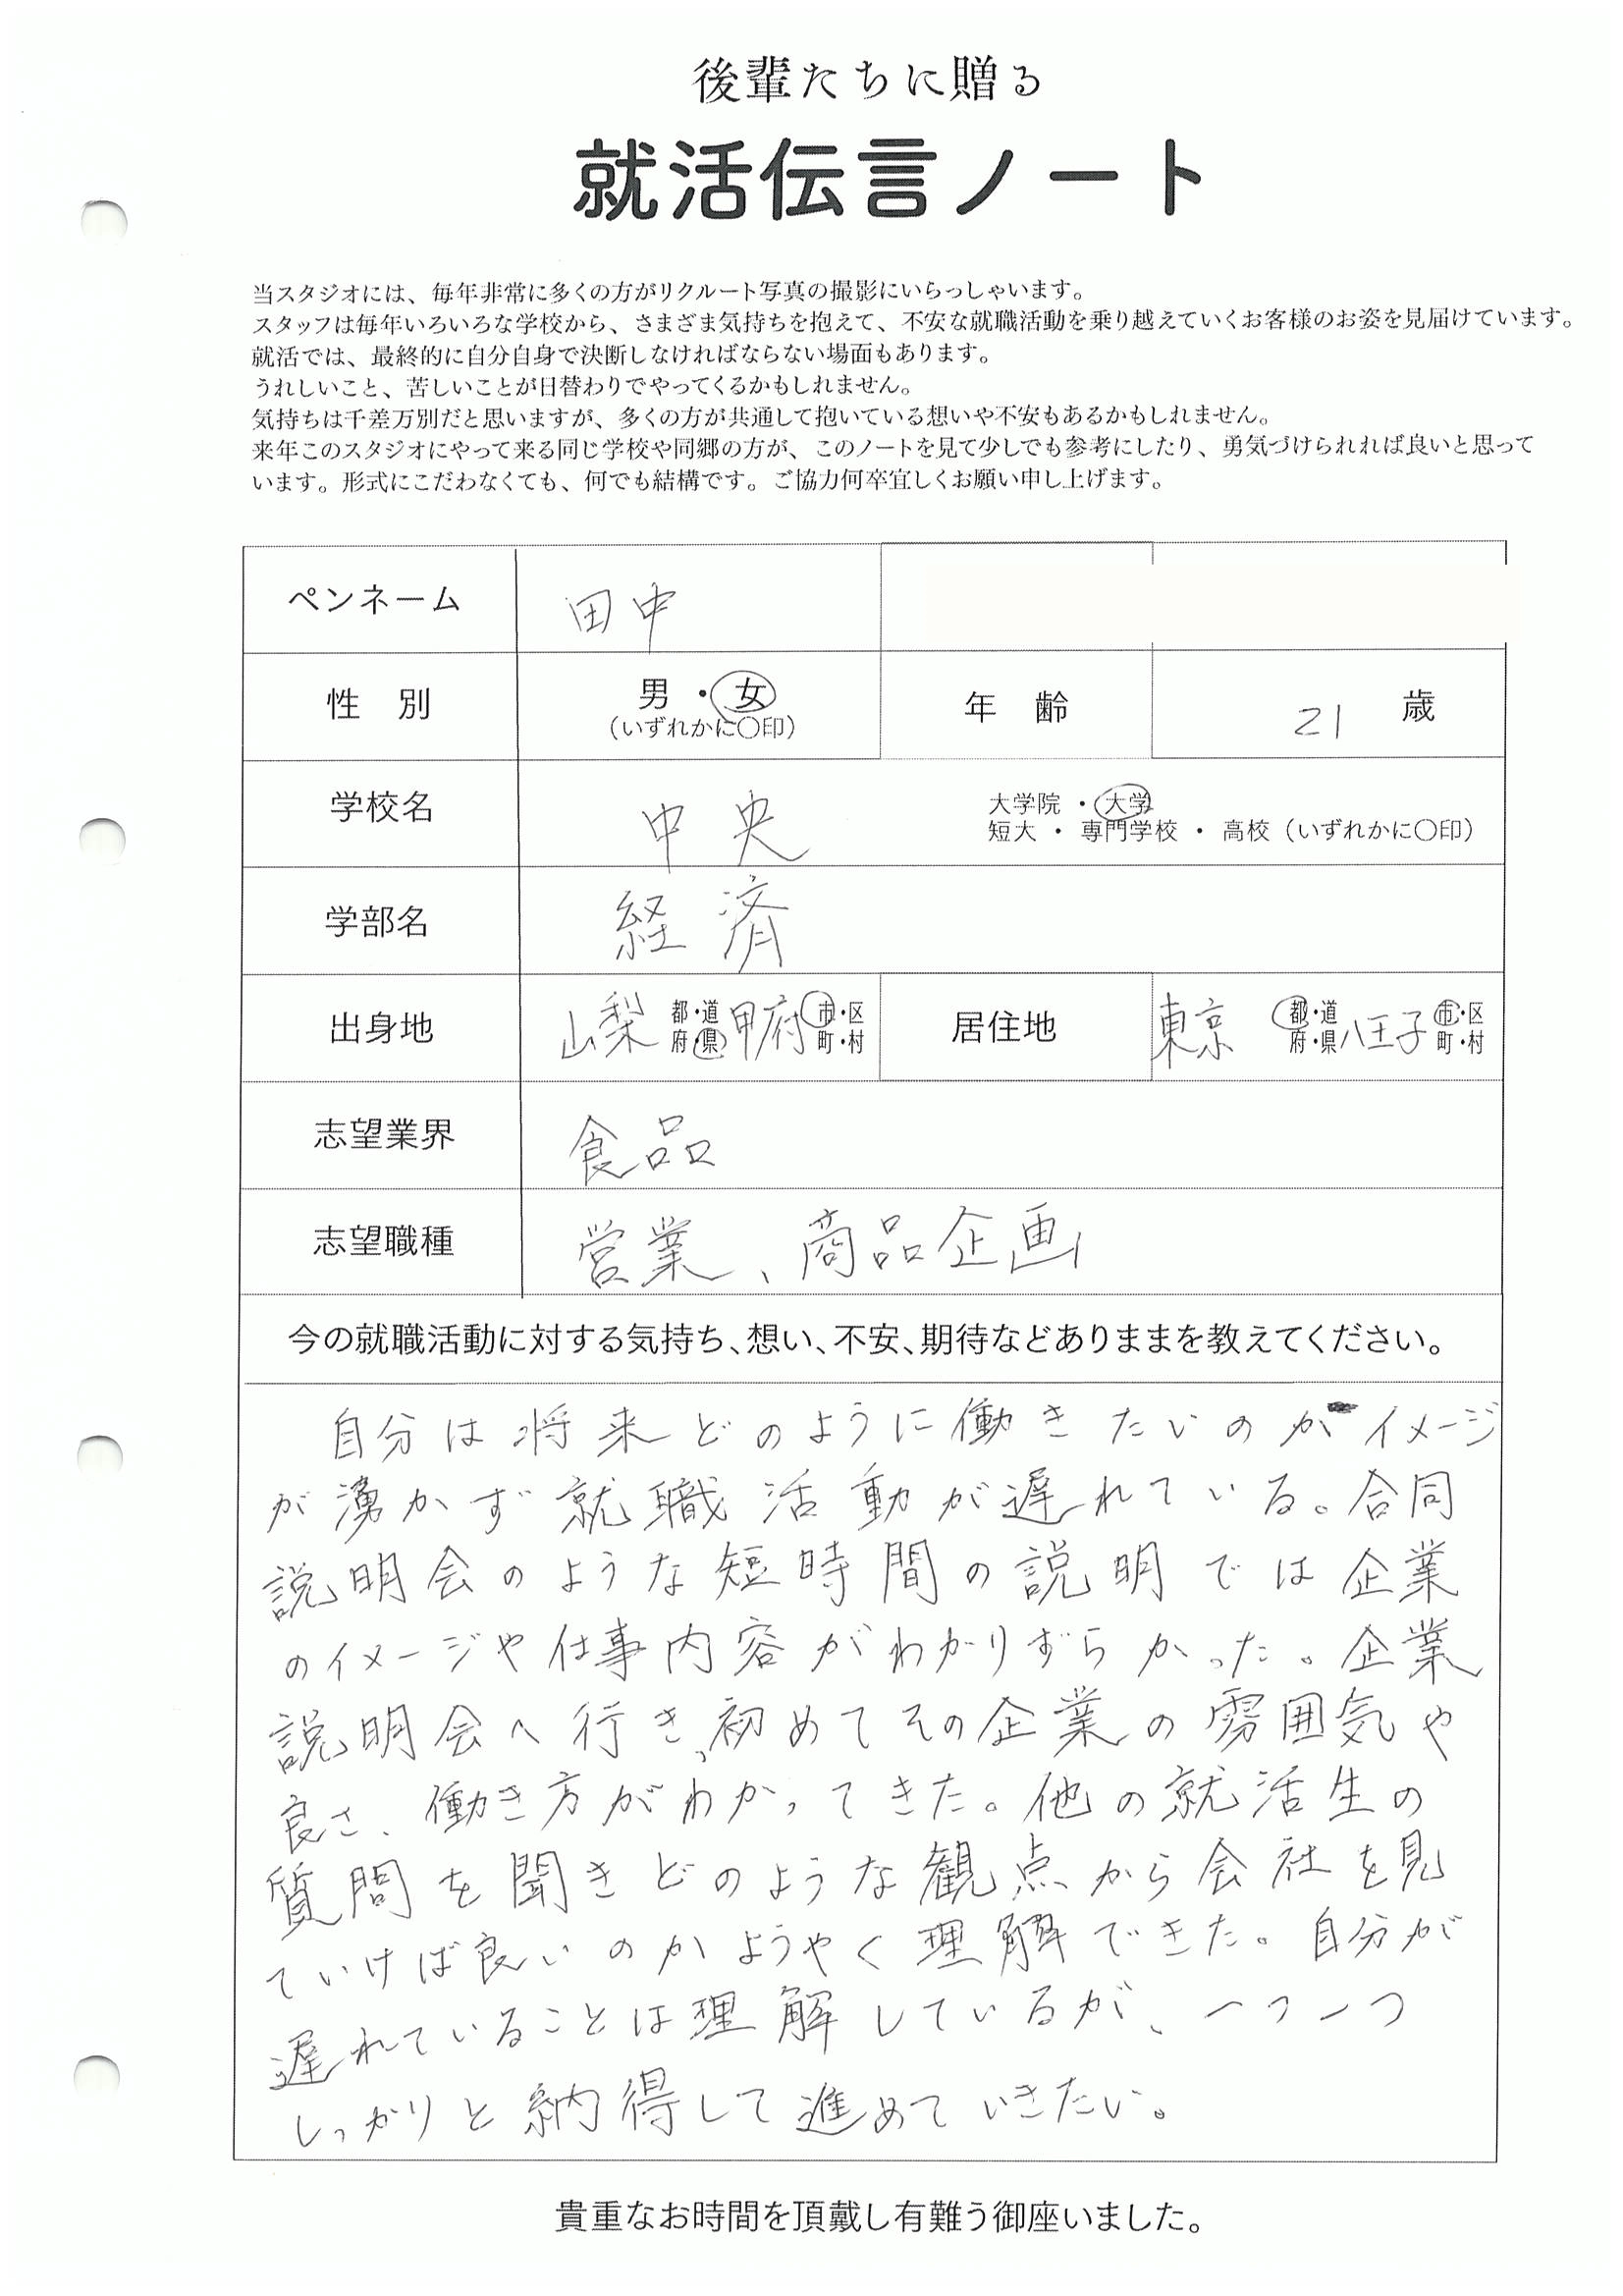 後輩たちに贈る
就活伝言ノート
当スタジオには、毎年非常に多くの方がリクルート写真の撮影にいらっしゃいます。
スタッフは毎年いろいろな学校から、さまざま気持ちを抱えて、不安な就職活動を乗り越えていくお客様のお姿を見届けています。
就活では、最終的に自分自身で決断しなければならない場面もあります。
うれしいこと、苦しいことが日替わりでやってくるかもしれません。
気持ちは千差万別だと思いますが、多くの方が共通して抱いている想いや不安もあるかもしれません。
来年このスタジオにやって来る同じ学校や同郷の方が、このノートを見て少しでも参考にしたり、勇気づけられれば良いと思って
います。形式にこだわなくても、何でも結構です。ご協力何卒宜しくお願い申し上げます。
ペンネーム 田中
性別 男・女 (いずれかに〇印) 年齢 21 歳
学校名 中央 大学院・大学
短大・専門学校・高校（いずれかに〇印）
学部名 経済
出身地 山梨 都・道府・県 甲府 市・区町・村 居住地 東京 都・道府・県 八王子 市・区町・村
志望業界 食品
志望職種 営業、商品企画
今の就職活動に対する気持ち、想い、不安、期待などありままを教えてください。
自分は将来どのように働きたいのかイメージ
が湧かず就職活動が遅れている。合同
説明会のような短時間の説明では企業
のイメージや仕事内容がわかりずらかった。企業
説明会へ行き、初めてその企業の雰囲気や
良さ、働き方がわかってきた。他の就活生の
質問を聞きどのような観点から会社を見
ていけば良いのかようやく理解できた。自分が
遅れていることは理解しているが、一つ一つ
しっかりと納得して進めていきたい。
貴重なお時間を頂戴し有難う御座いました。